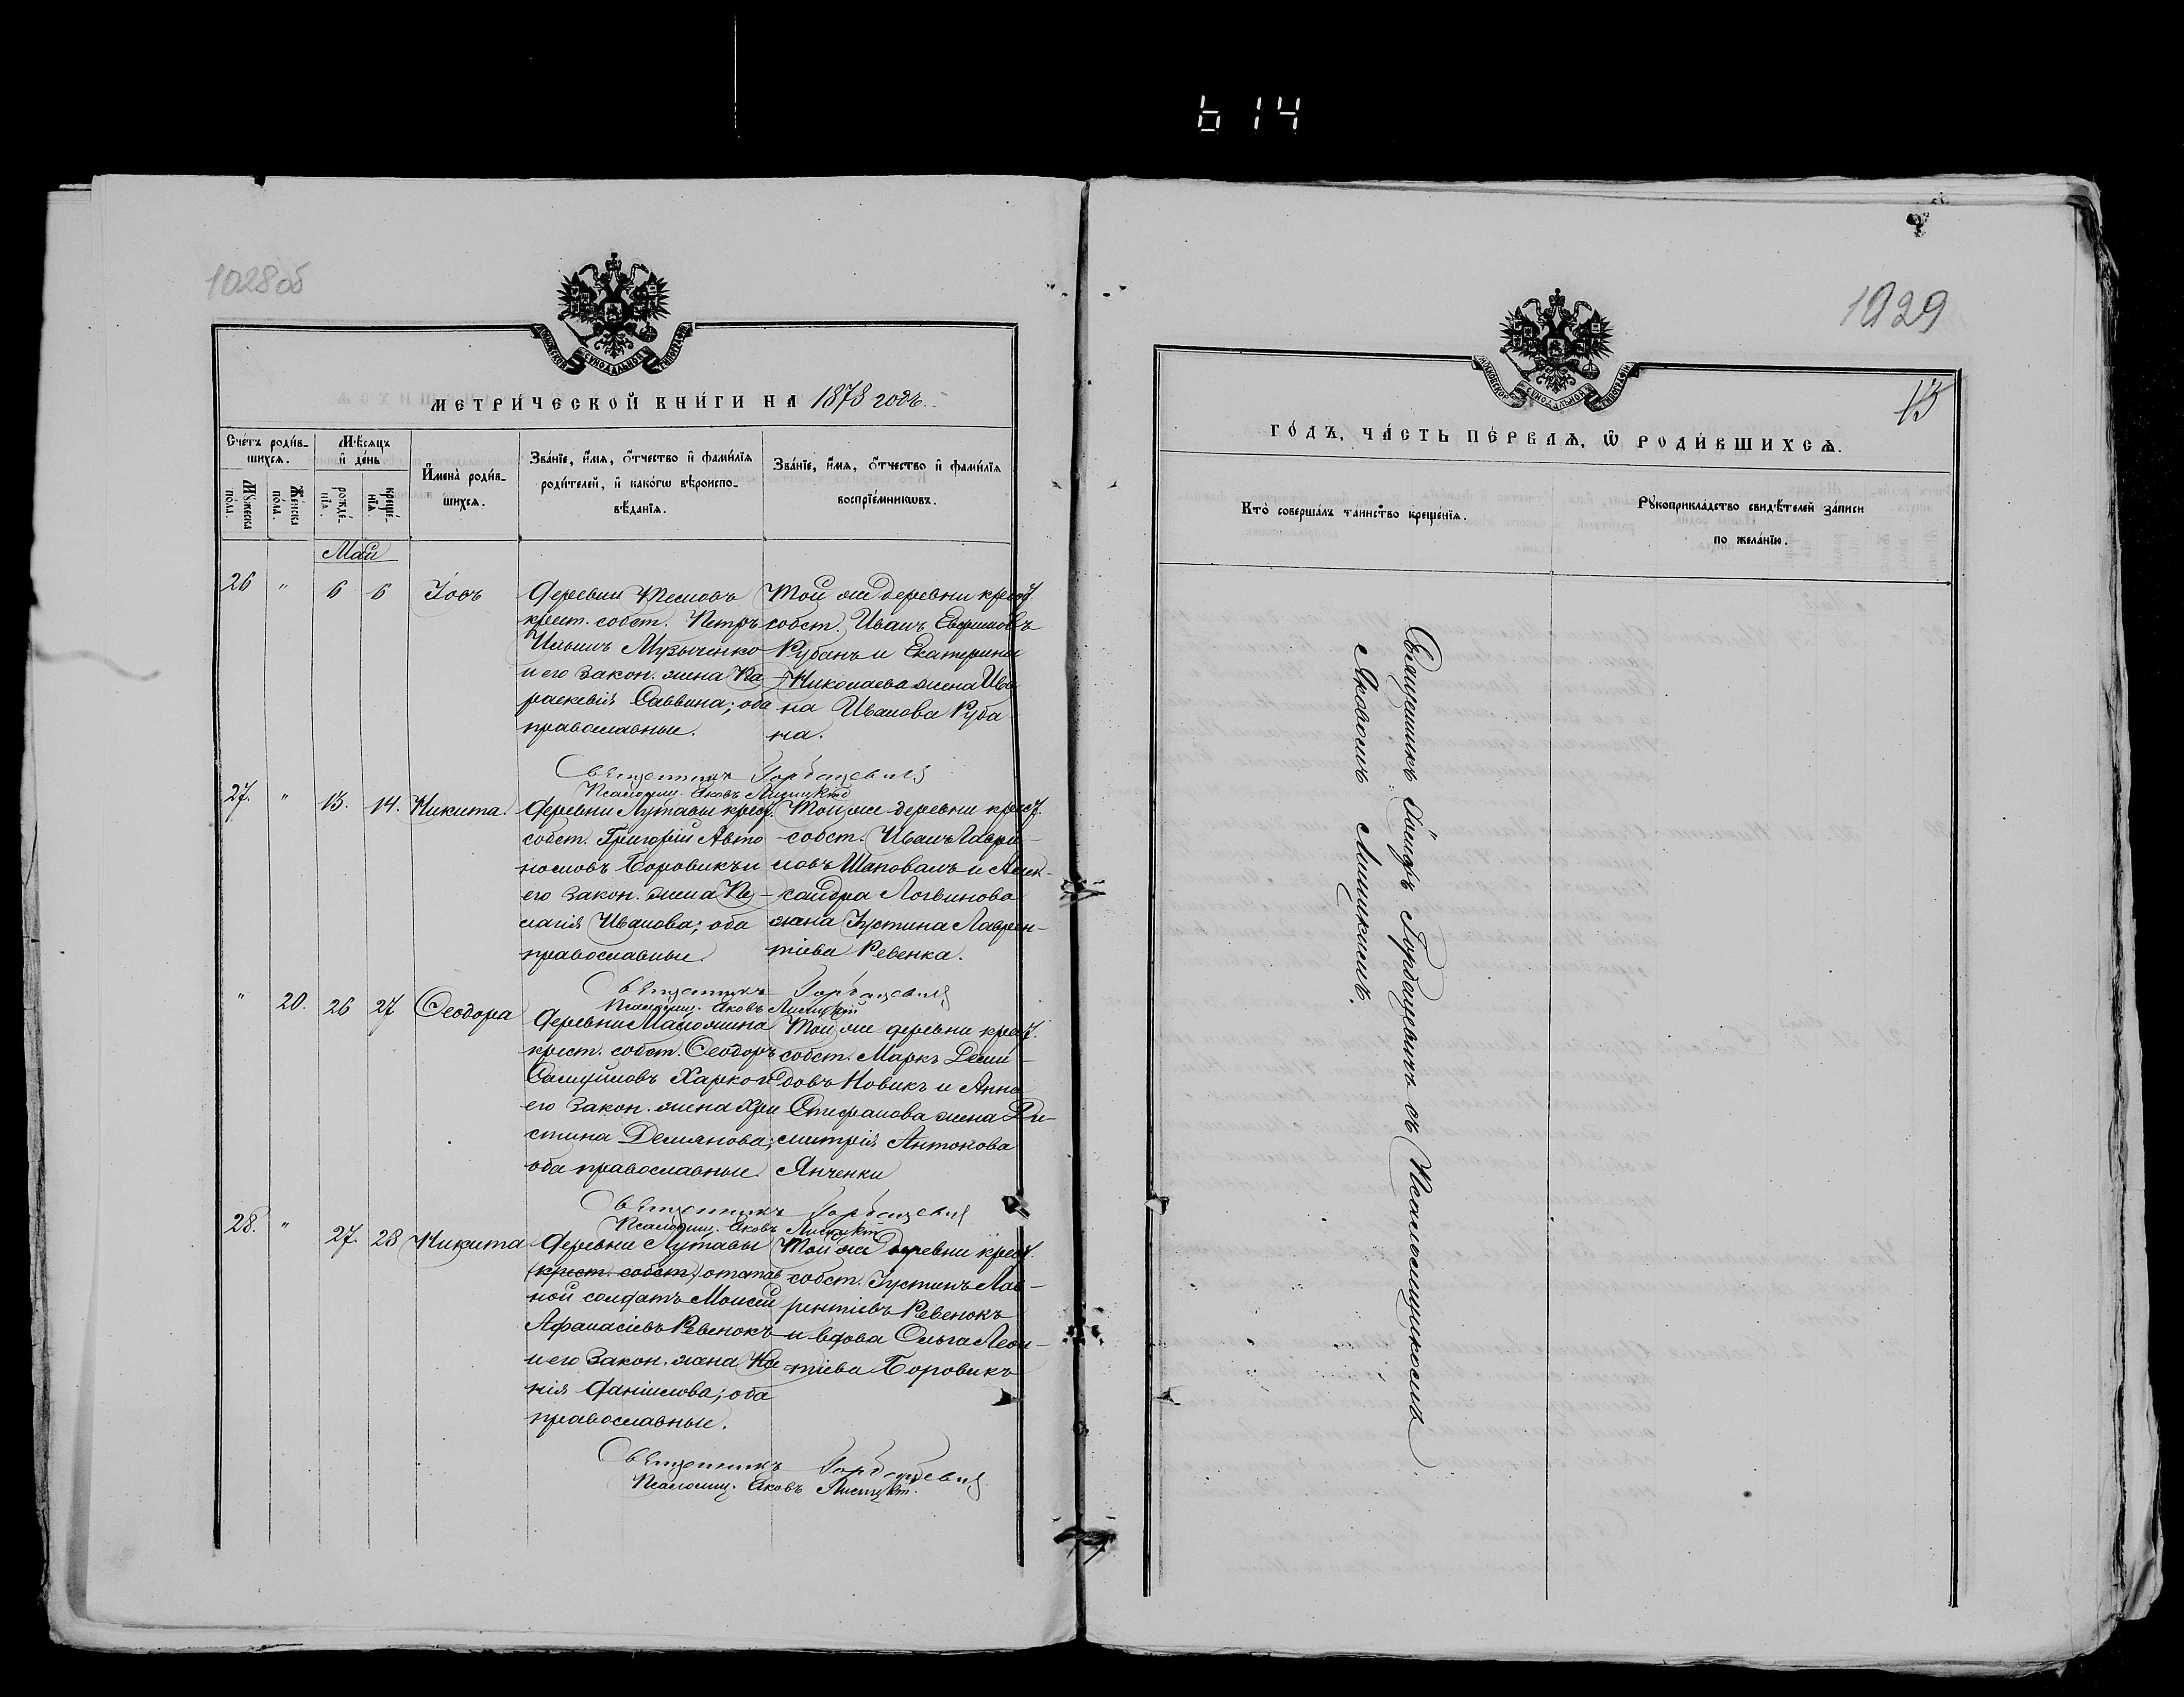 614
1028об
МЕТРИ́ЧЕСКОЙ КНИ́ГИ НА 1878 годъ.
Сче́тъ роди́в-
шихся.
Му́жеска
по́ла.
Же́нска
по́ла.
Мѣ́сяцъ
и҆ де́нь
рожде́-
нїѧ.
креще́-
нїѧ.
И҆мена̀ роди́в-
шихсѧ.
Зва́нїе, и҆́мѧ, ѻ҆́тчество и҆ фами́лїѧ
роди́телей, и҆ како́гѡ вѣ̑роиспо-
вѣ́данїѧ.
Зва́нїе, и҆́мѧ, ѻ҆́тчество и҆ фами́лїѧ
воспрїе́мникѡвъ.
Май
26 " 6 6 Іовъ
Деревни
крест. собст. Петръ
Ильинъ Музыченко
и его закон. жена Па-
раскевія Саввина; оба
православные.
Той же деревни крест.
собст. Иванъ Евфимовъ
Рубанъ и Екатерина
Николаева жена Ива-
на Иванова Руба-
на.
Священникъ Горбацевичъ
Псаломщ. Яковъ
27. " 13. 14. Никита.
Деревни Лутавы крест.
собст. Григорій Авто-
номовъ Боровикъ и
его закон. жена Пе-
лагія Иванова; оба
православные.
Той же деревни крест.
собст. Иванъ Гаври-
ловъ Шаповалъ и Алек-
сандра Логвинова
жена Іустина Лаврен-
тіева Ревенка.
Священникъ Горбацевичъ
Псаломщ. Яковъ
" 20. 26 27 Ѳеодора
Деревни
крест. собст. Ѳеодоръ
Самуйловъ Харкого
его закон. жена Хри-
стина Демьянова;
оба православные.
Той же деревни крест.
собст. Маркъ Деми-
довъ Новикъ и Анна
Стефанова жена Ди-
митрія Антонова
Янченки
Священникъ Горбацевичъ
Псаломщ. Яковъ
28. " 27. 28 Никита
Деревни Лутавы
(крест. собст.) отстав-
ной солдатъ Моисей
Афанасіевъ Ревенокъ
и его закон. жена
Даніилова; оба
православные.
Той же деревни крест.
собст. Іустинъ Лав-
рентіевъ Ревенокъ
и вдова Ольга Леон-
тіева Боровикъ
Священникъ Горбацевичъ
Псаломщ. Яковъ
1029
13
ГО́ДЪ, ЧА́СТЬ ПЕ́РВАѦ, Ѡ҆ РОДИ́ВШИХСѦ.
Кто̀ соверша́лъ та́инство креще́нїѧ.
Рꙋкоприкла́дство свидѣ́телей за́писи
по жела́нїю.
Священникъ Горбацевичъ съ Псаломщикомъ
Яковомъ